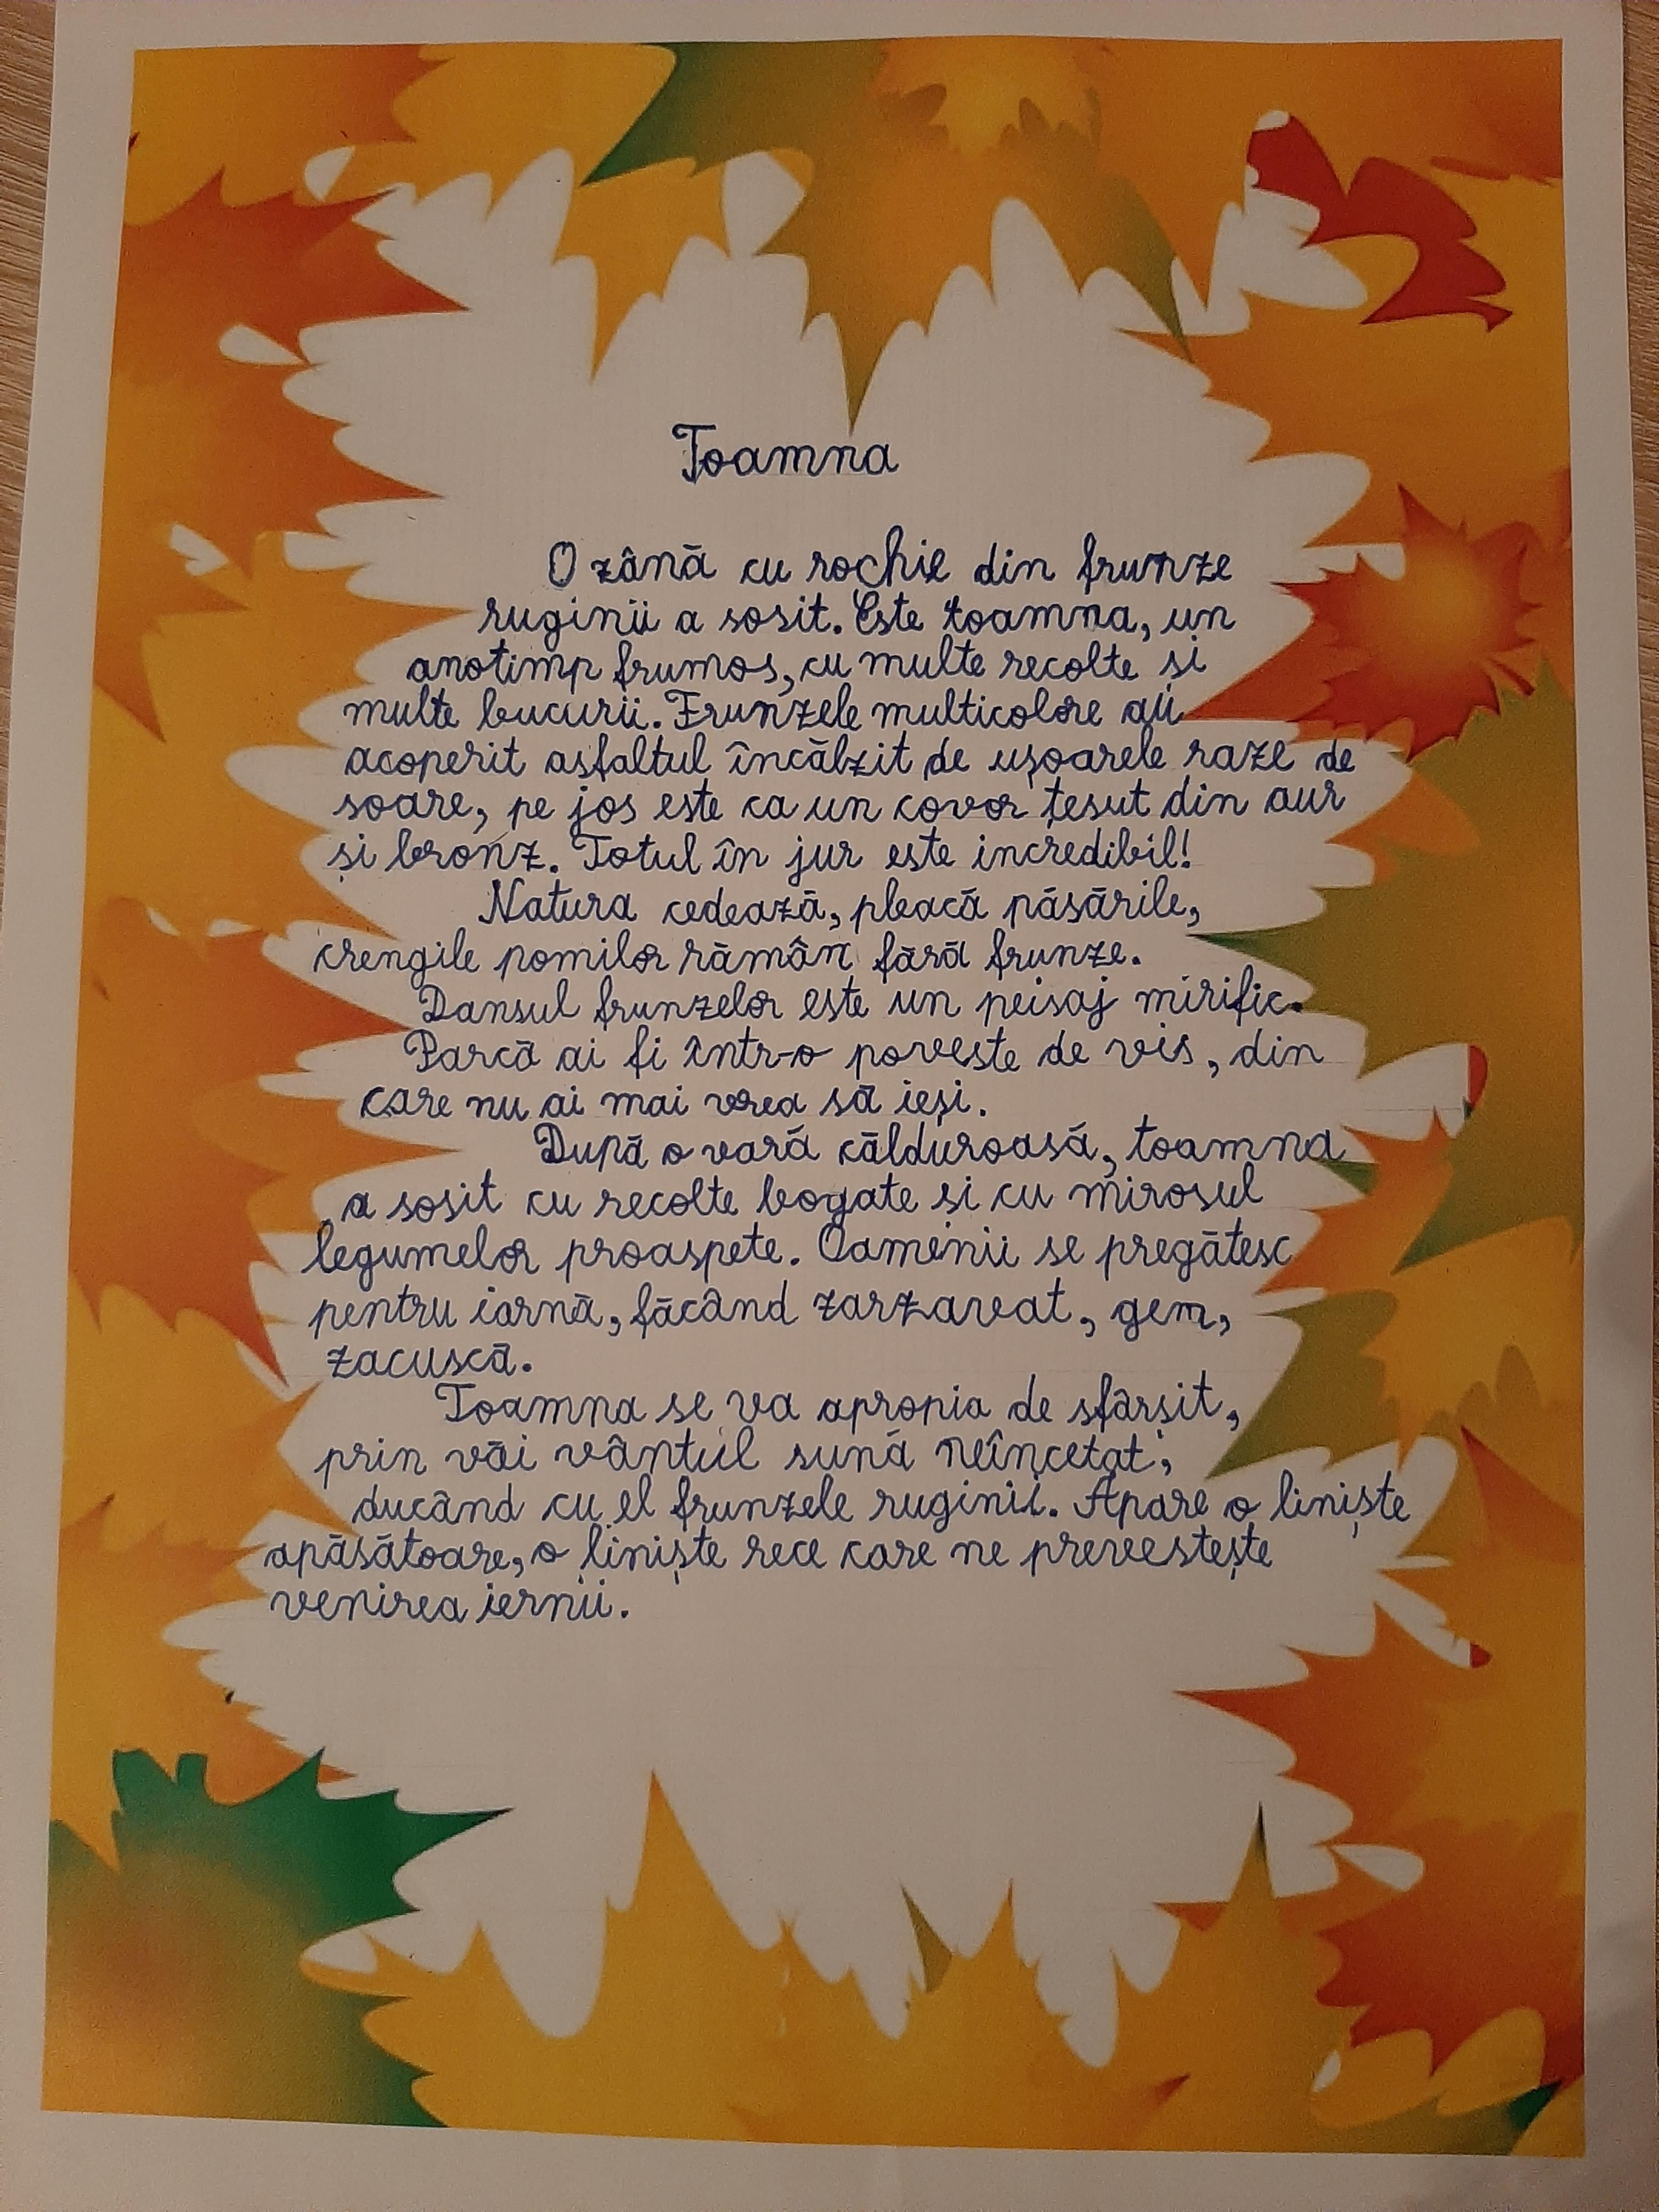 Toamna
O zână cu rochie din frunze
ruginii a sosit. Este toamna, un
anotimp frumos, cu multe recolte și
multe bucurii. Frunzele multicolore au
acoperit asfaltul încălzit de ușoarele raze de
soare, pe jos este ca un covor țesut din aur
și bronz. Totul în jur este incredibil!
Natura cedează, pleacă păsările,
crengile pomilor rămân fără frunze.
Dansul frunzelor este un peisaj mirific.
Parcă ai fi într-o poveste de vis, din
care nu ai mai vrea să ieși.
După o vară călduroasă, toamna
a sosit cu recolte bogate și cu mirosul
legumelor proaspete. Oamenii se pregătesc
pentru iarnă, făcând zarzavat, gem,
zacuscă.
Toamna se va apropia de sfârșit,
prin văi vântul sună neîncetat,
ducând cu el frunzele ruginii. Apare o liniște
apăsătoare, o liniște rece care ne prevestește
venirea iernii.